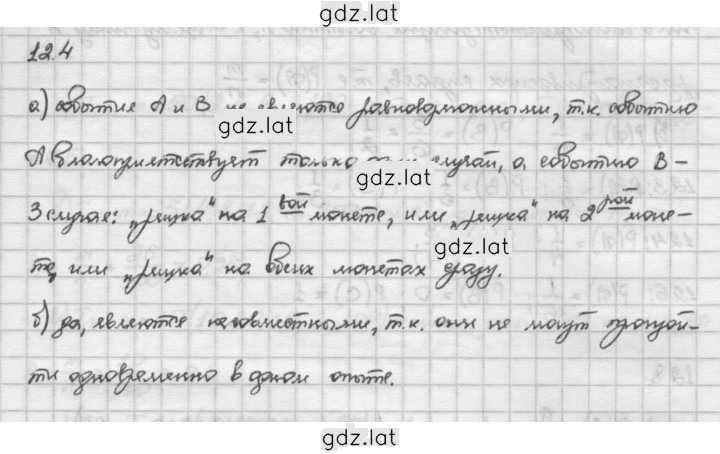 gdz.lat
12.4
а) событие А и В не являются равновозможными, т.к. событию
gdz.lat
А благоприятствует только один случай, а событию В -
gdz.lat
3 случая: „решка“ на 1 вой монете, или „решка“ на 2 рой моне-
gdz.lat
те, или „решка“ на обеих монетах сразу.
б) да, являются несовместными, т.к. они не могут произой-
ти одновременно в одном опыте.
gdz.lat